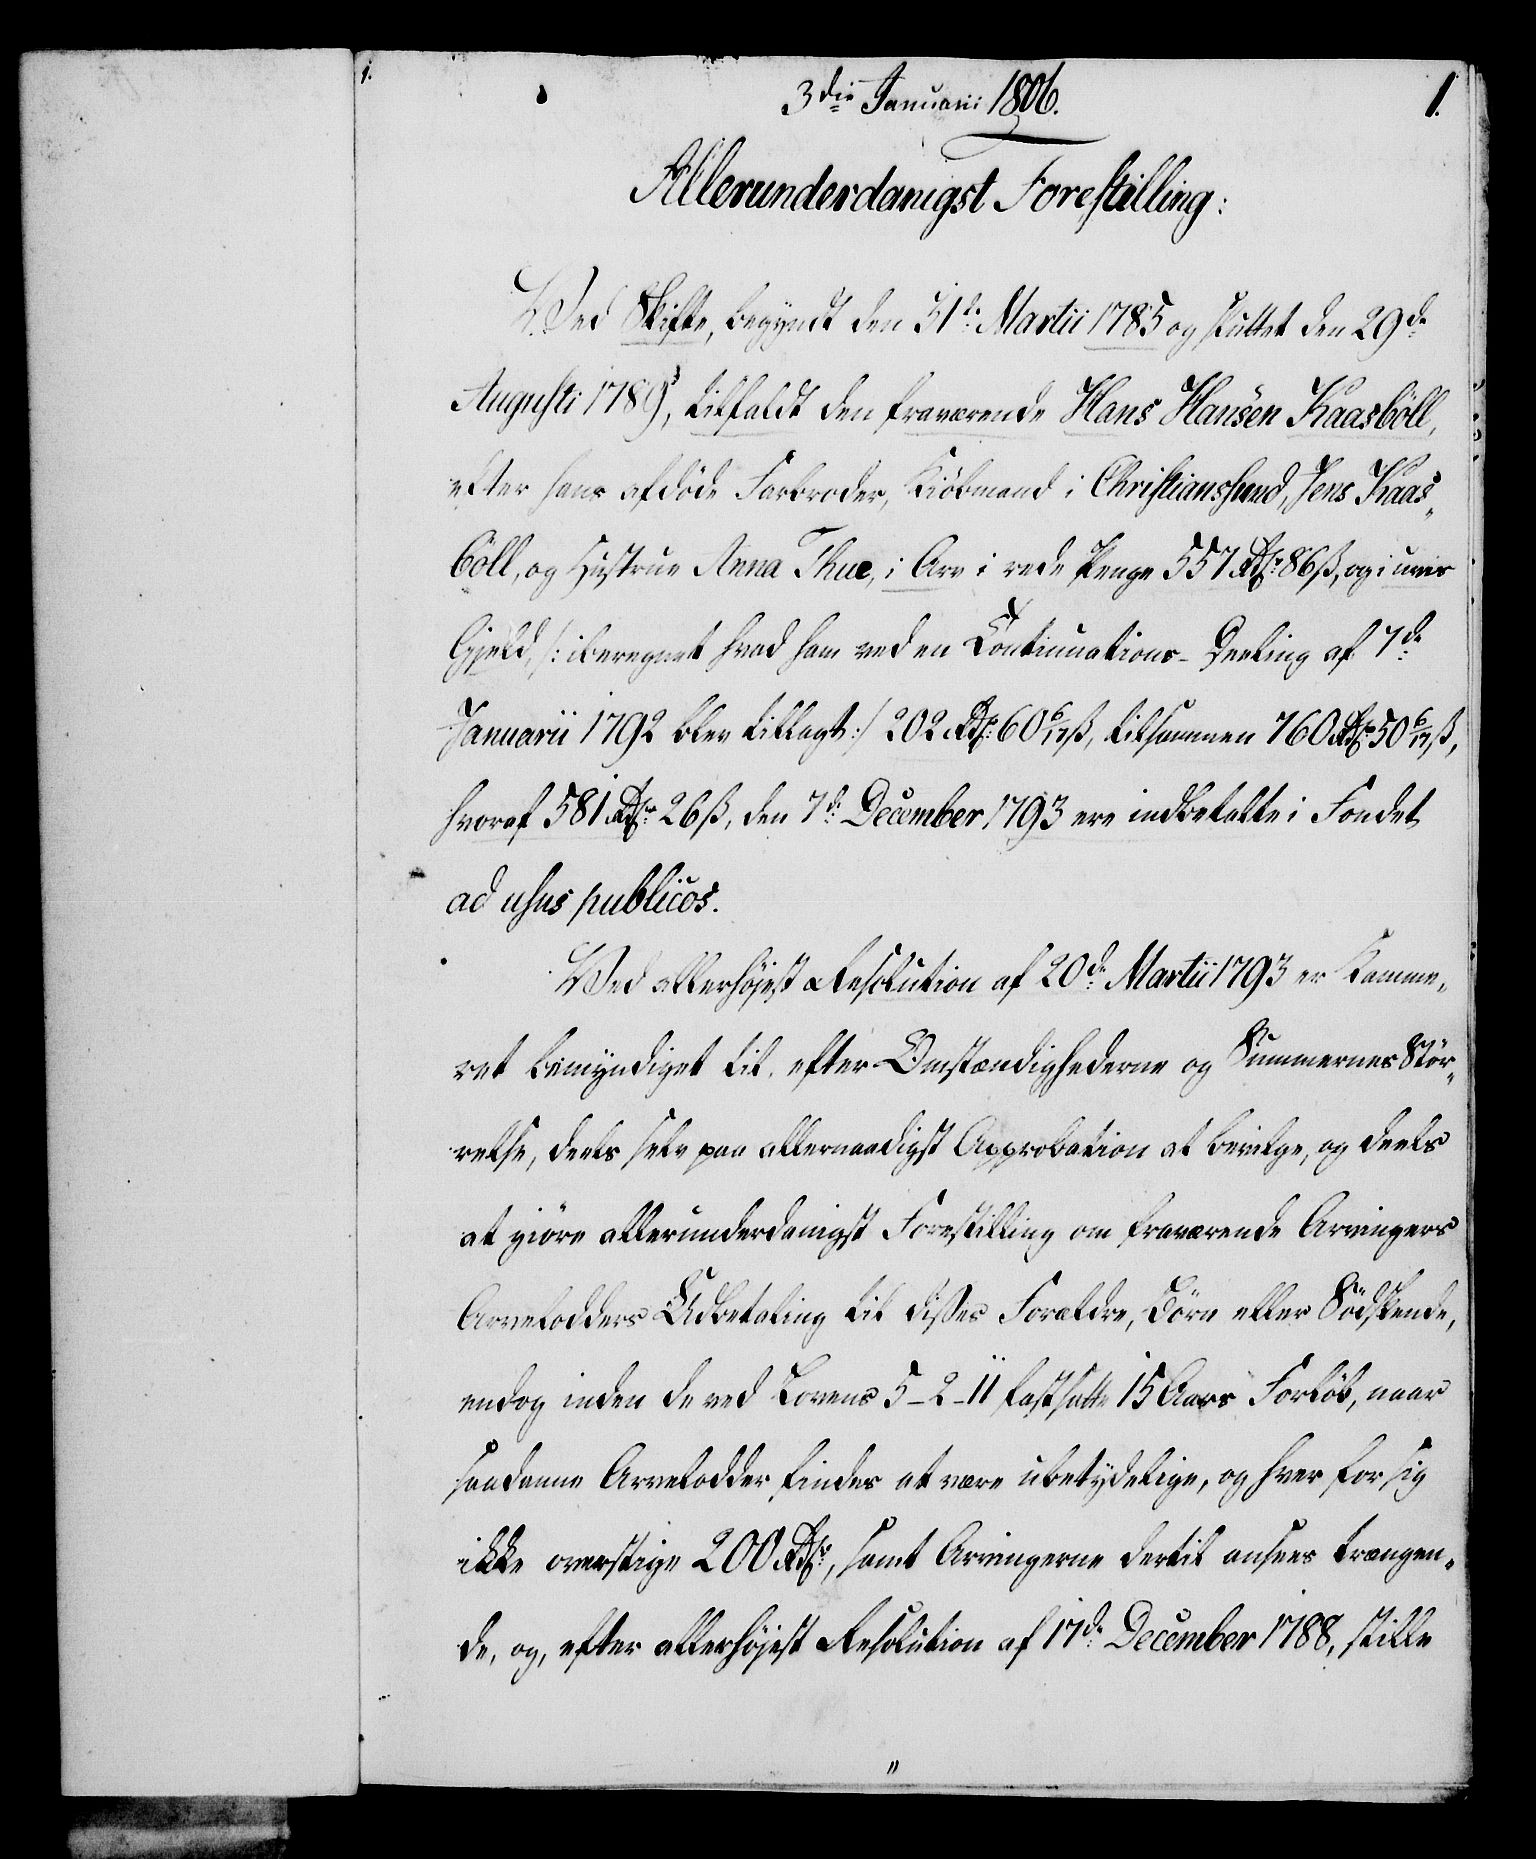 1.
3die Januarii 1806.
1.
Allerunderdanigst Forestilling:
Ved Skifte, begyndt den 31de Martii 1785 og sluttet den 29de
Augusti 1789, tilfaldt den fraværende Hans Hansen Kaasböll,
efter hans afdöde Farbroder, Kiöbmand i Christianssund, Jens Kaas„
böll, og Hustrue Anna Thue, i Arv i rede Penge 557 Rdr 86 ß, og i uvis
Gjeld, /: iberegnet hvad ham ved en Continuations-Deeling af 7de
Januarii 1792 blev tillagt :/ 202 Rdr 60 6/17 ß, tilsammen 760 Rdr 50 6/17 ß,
hvoraf 581 Rdr 26 ß, den 7de December 1793 ere indbetalte i Fondet
ad usus publicos.
Ved allerhöjest Resolution af 20de Martii 1793 er Kamme„
ret bemyndiget til, efter Omstændighederne og Summernes Stör„
relse, deels selv paa allernaadigst Approbation at bevilge, og deels
at giöre allerunderdanigst Forestilling om fraværende Arvingers
Arvelodders Udbetaling til disses Forældre, Börn eller Södskende,
endog inden de ved Lovens 5-2-11 fastsatte 15 Aars Forlöb, naar
saadanne Arvelodder findes at være ubetydelige, og hver for sig
ikke overstige 200 Rdr, samt Arvingerne dertil ansees trængen„
de, og, efter allerhöjest Resolution af 17de December 1788, stille
"